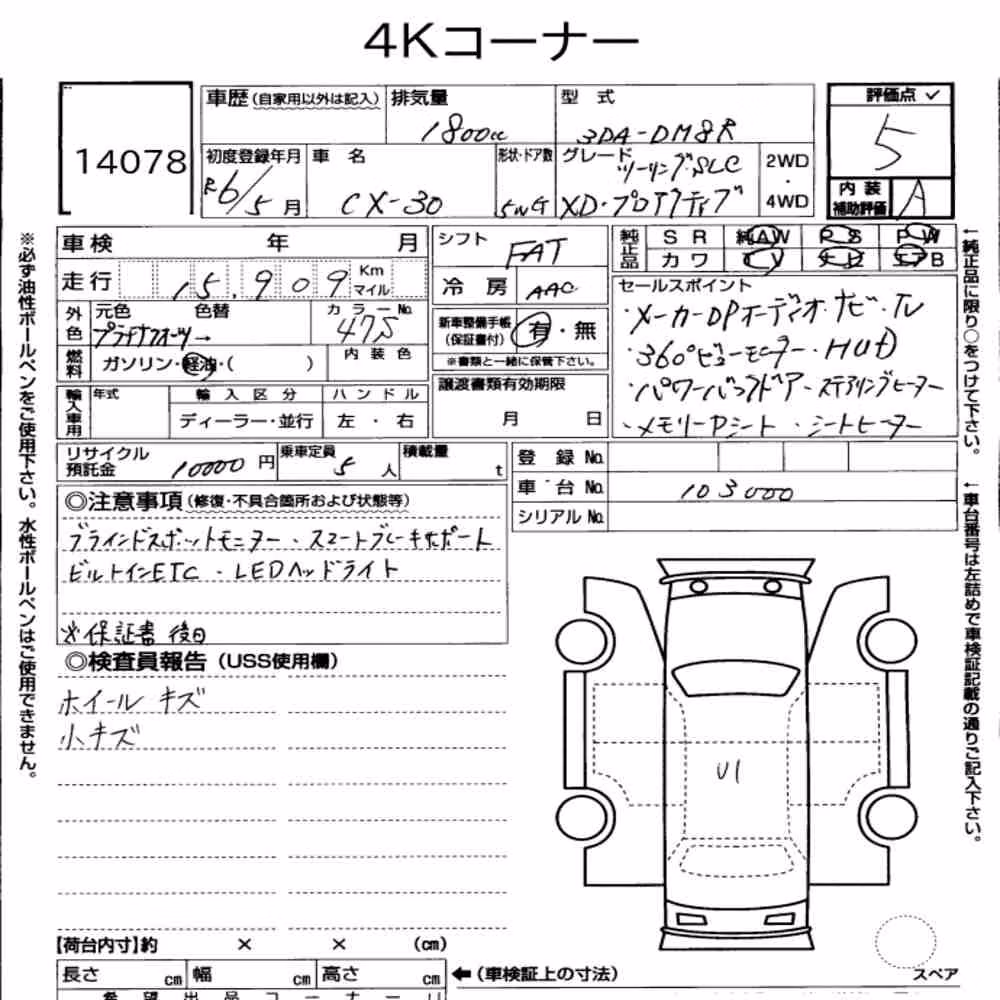 4Kコーナー
14078
車歴(自家用以外は記入) 排気量 型式 評価点 ✓
1800cc 3DA-DM8R 5
初度登録年月 車名 形状・ドア数 グレード 2WD・4WD
R6/5月 CX-30 5WG ツーリング・SLC XD・プロアクティブ
内装補助評価 A
車検 年 月 シフト FAT 純正品 SR 純AW PS PW
カワ TV ナビ エアB
走行 15,909 Km マイル 冷房 AAC
セールスポイント
・メーカーOPオーディオ・ナビ・TV
・360°ビューモニター・HUD
・パワーバックドア・ステアリングヒーター
・メモリーPシート・シートヒーター
外色 元色 色替 カラーNo.
プラチナクォーツ→ 47S
新車整備手帳(保証書付) 有・無
※書類と一緒に保管下さい。
燃料 ガソリン・軽油・( ) 内装色
譲渡書類有効期限
月 日
輸入車用 年式 輸入区分 ハンドル
ディーラー・並行 左・右
リサイクル預託金 10000円 乗車定員 5人 積載量 t
登録No.
車台No. 103000
シリアルNo.
◎注意事項(修復・不具合箇所および状態等)
ブラインドスポットモニター・スマートブレーキサポート
ビルトインETC・LEDヘッドライト
※保証書 後日
◎検査員報告(USS使用欄)
ホイール キズ
小キズ
U1
【荷台内寸】約 × × (cm)
長さ cm 幅 cm 高さ cm ←(車検証上の寸法)
スペア
希望出品コーナー
※必ず油性ボールペンをご使用下さい。水性ボールペンはご使用できません。
←純正品に限り○をつけて下さい。
←車台番号は左詰めで車検証記載の通りご記入下さい。